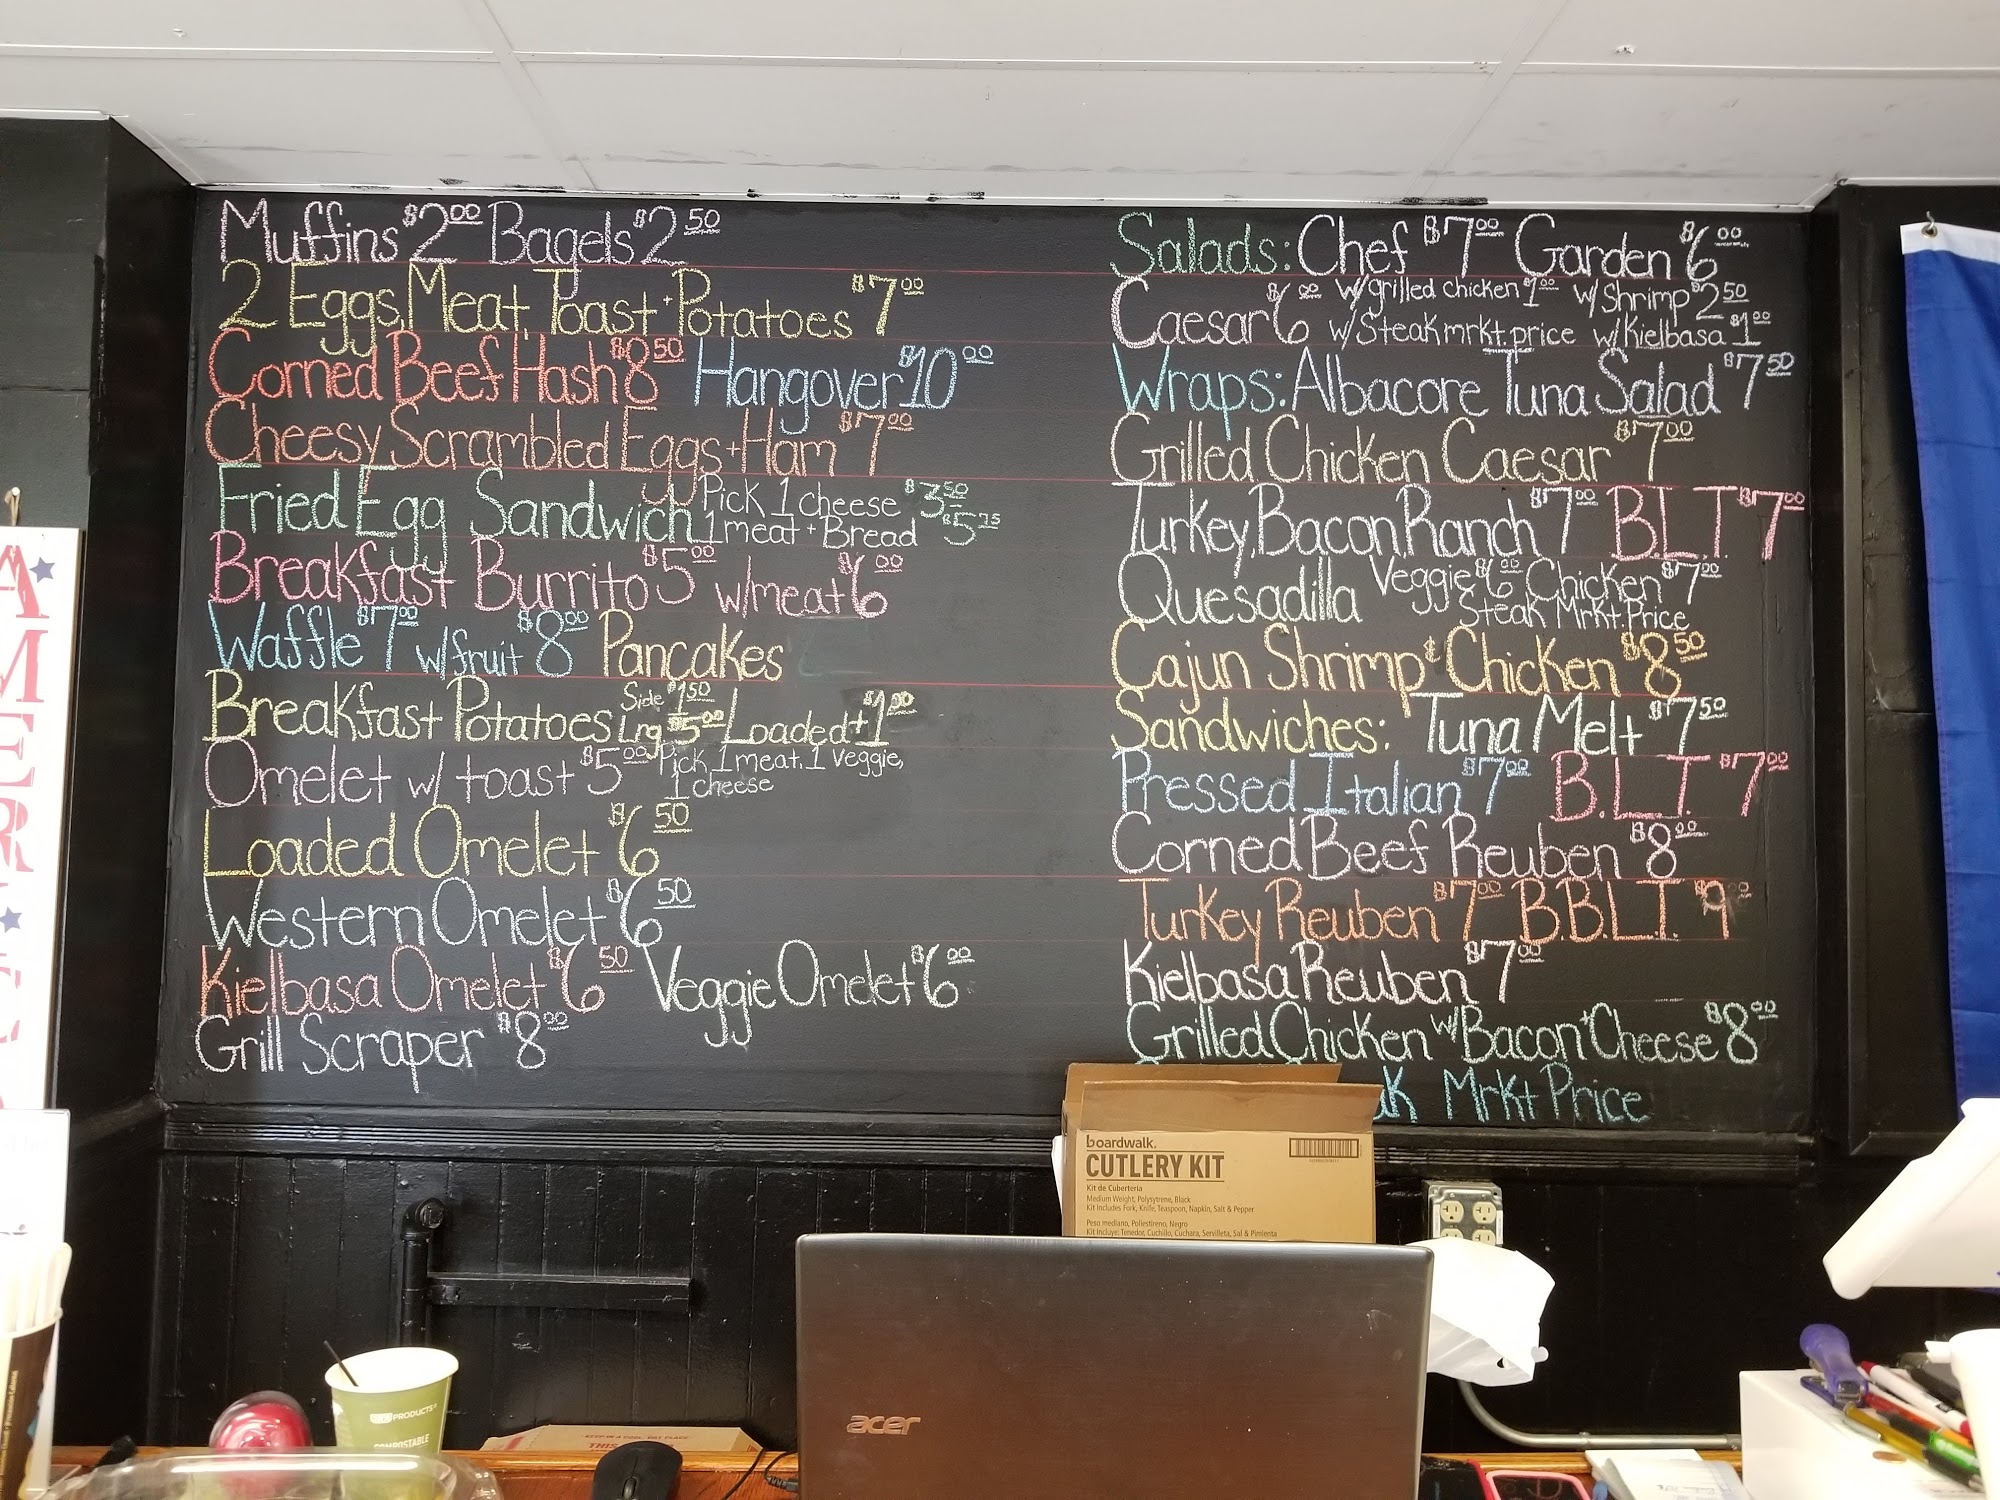 Muffins $2.00 Bagels $2.50
2 Eggs, Meat, Toast + Potatoes $7.00
Corned Beef Hash $8.50 Hangover $10.00
Cheesy Scrambled Eggs + Ham $7.00
Fried Egg Sandwich Pick 1 cheese $3.50
1 meat + Bread $5.75
Breakfast Burrito $5.00 w/meat $6.00
Waffle $7.00 w/fruit $8.00 Pancakes
Breakfast Potatoes Side $1.50
Lrg $5.00 Loaded + $1.00
Omelet w/ toast $5.00 Pick 1 meat, 1 veggie,
1 cheese
Loaded Omelet $6.50
Western Omelet $6.50
Kielbasa Omelet $6.50 Veggie Omelet $6.00
Grill Scraper $8.00
Salads: Chef $7.00 Garden $6.00
Caesar $6.00 w/grilled chicken $1.00 w/Shrimp $2.50
w/Steak mrkt. price w/Kielbasa $1.00
Wraps: Albacore Tuna Salad $7.50
Grilled Chicken Caesar $7.00
Turkey, Bacon, Ranch $7.00 B.L.T. $7.00
Quesadilla Veggie $6.00 Chicken $7.00
Steak Mrkt. Price
Cajun Shrimp & Chicken $8.50
Sandwiches: Tuna Melt $7.50
Pressed Italian $7.00 B.L.T. $7.00
Corned Beef Reuben $8.00
Turkey Reuben $7.00 B.B.L.T. $9.00
Kielbasa Reuben $7.00
Grilled Chicken w/Bacon + Cheese $8.00
ak Mrkt Price
AMERIC
boardwalk.
CUTLERY KIT
Kit de Cuberteria
Medium Weight, Polystyrene, Black
Kit Includes Fork, Knife, Teaspoon, Napkin, Salt & Pepper
Peso mediano, Poliestireno, Negro
Kit Incluye: Tenedor, Cuchillo, Cuchara, Servilleta, Sal & Pimienta
acer
PRODUCTS
COMPOSTABLE
THIS